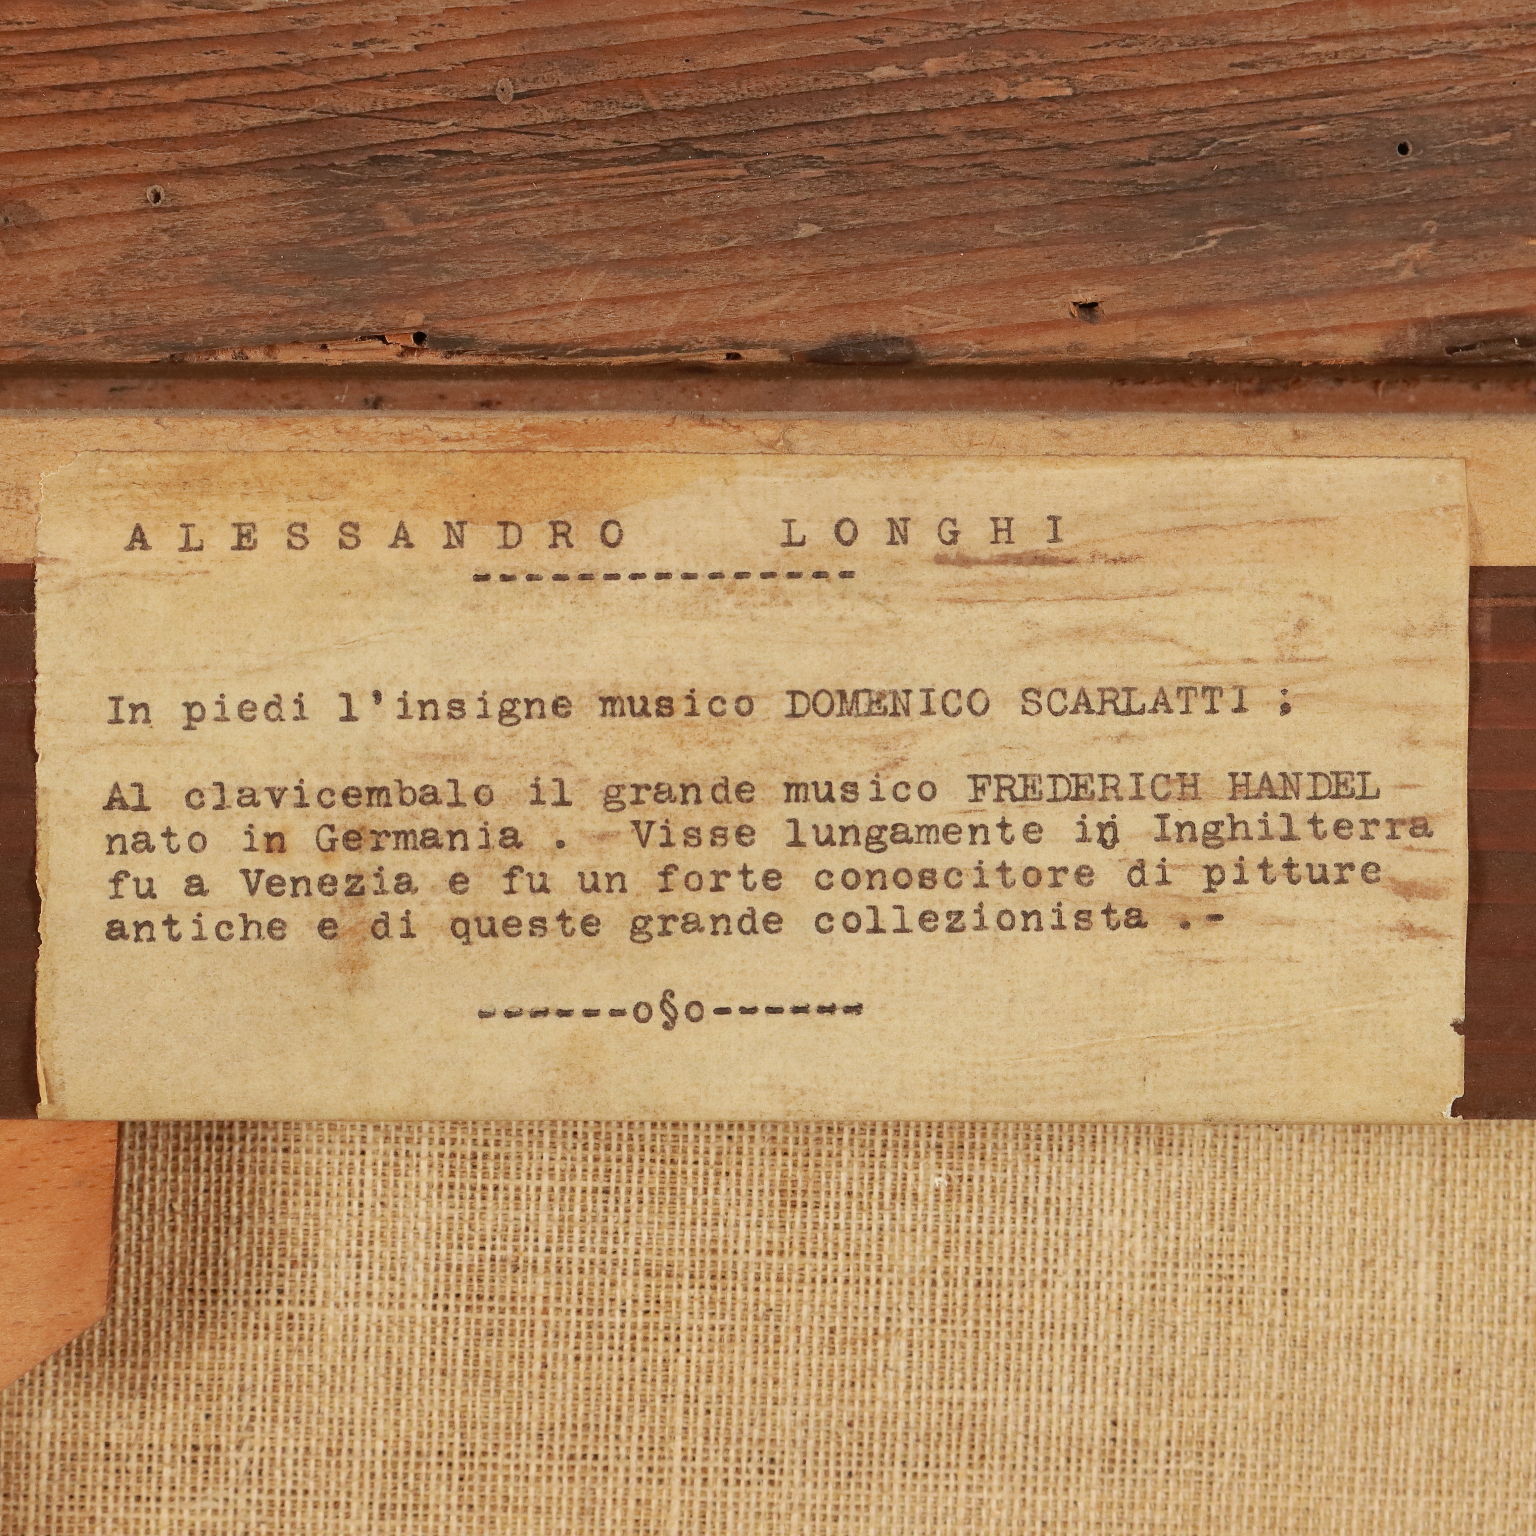 ALESSANDRO LONGHI
---------------
In piedi l'insigne musico DOMENICO SCARLATTI ;
Al clavicembalo il grande musico FREDERICH HANDEL
nato in Germania . Visse lungamente in Inghilterra
fu a Venezia e fu un forte conoscitore di pitture
antiche e di queste grande collezionista .-
------o§o------